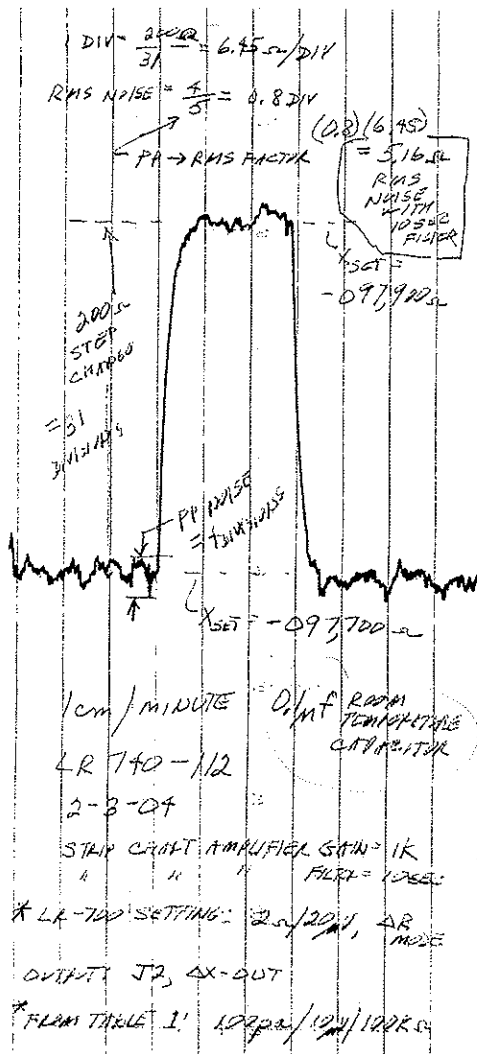 DIV = 200Ω/31 = 6.45Ω/DIV
RMS NOISE = 4/5 = 0.8 DIV
PP → RMS FACTOR
(0.8)(6.45)
= 5.16Ω
RMS
NOISE
WITH
10 SEC
FILTER
XSET =
-097,900Ω
200Ω
STEP
CHANGE
= 31
DIVISIONS
PP NOISE
= 4 DIVISIONS
XSET = -097,700Ω
1cm/MINUTE
0.1μf ROOM
TEMPERATURE
CAPACITOR
LR 740-112
2-3-04
STRIP CHART AMPLIFIER GAIN = 1K
" " " FILTER = 10SEC
* LR-700 SETTING: 2Ω/20μV, ΔR
MODE
OUTPUT: J2, ΔX-OUT
* FROM TABLE 1: